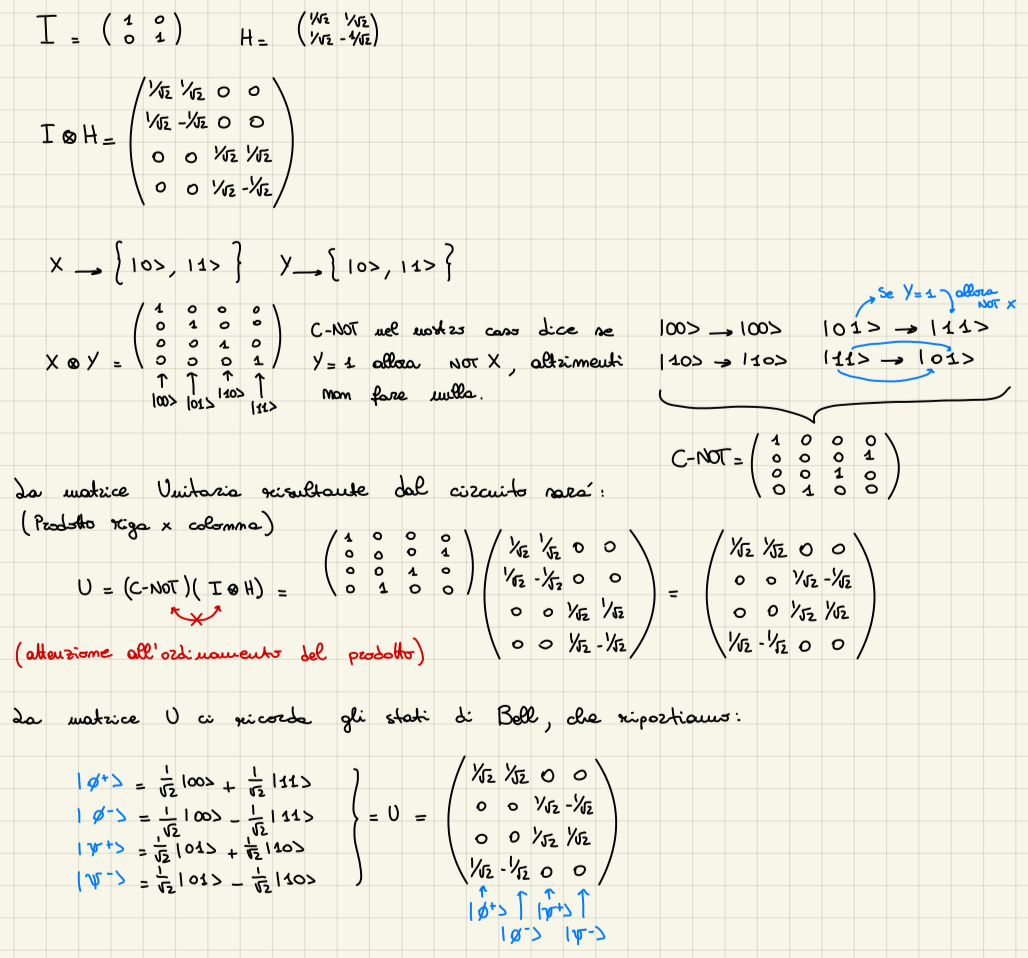 I = ( 1 0 / 0 1 ) H = ( 1/√2 1/√2 / 1/√2 -1/√2 )
I ⊗ H = ( 1/√2 1/√2 0 0 / 1/√2 -1/√2 0 0 / 0 0 1/√2 1/√2 / 0 0 1/√2 -1/√2 )
X → { |0>, |1> } Y → { |0>, |1> }
X ⊗ Y = ( 1 0 0 0 / 0 1 0 0 / 0 0 1 0 / 0 0 0 1 )
↑ ↑ ↑ ↑
|00> |01> |10> |11>
C-NOT nel nostro caso dice se
Y=1 allora NOT X, altrimenti
non fare nulla.
se Y=1 allora
NOT X
|00> → |00> |01> → |11>
|10> → |10> |11> → |01>
C-NOT = ( 1 0 0 0 / 0 0 0 1 / 0 0 1 0 / 0 1 0 0 )
La matrice Unitaria risultante dal circuito sarà:
(Prodotto riga x colonna)
U = (C-NOT)( I ⊗ H) = ( 1 0 0 0 / 0 0 0 1 / 0 0 1 0 / 0 1 0 0 ) ( 1/√2 1/√2 0 0 / 1/√2 -1/√2 0 0 / 0 0 1/√2 1/√2 / 0 0 1/√2 -1/√2 ) = ( 1/√2 1/√2 0 0 / 0 0 1/√2 -1/√2 / 0 0 1/√2 1/√2 / 1/√2 -1/√2 0 0 )
(attenzione all'ordinamento del prodotto)
La matrice U ci ricorda gli stati di Bell, che riportiamo:
|ø+> = 1/√2 |00> + 1/√2 |11>
|ø-> = 1/√2 |00> - 1/√2 |11>
|ψ+> = 1/√2 |01> + 1/√2 |10>
|ψ-> = 1/√2 |01> - 1/√2 |10>
} = U = ( 1/√2 1/√2 0 0 / 0 0 1/√2 -1/√2 / 0 0 1/√2 1/√2 / 1/√2 -1/√2 0 0 )
↑ ↑ ↑ ↑
|ø+> |ψ+>
|ø-> |ψ->